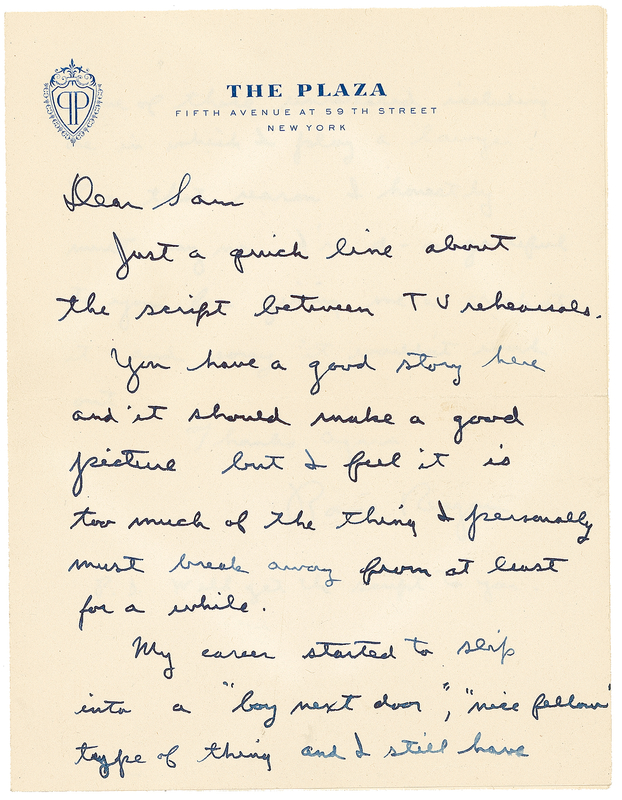 THE PLAZA
FIFTH AVENUE AT 59TH STREET
NEW YORK
Dear Sam
Just a quick line about
the script between TV rehearsals.
You have a good story here
and it should make a good
picture but I feel it is
too much of the thing I personally
must break away from at least
for a while.
My career started to slip
into a "boy next door", "nice fellow"
type of thing and I still have